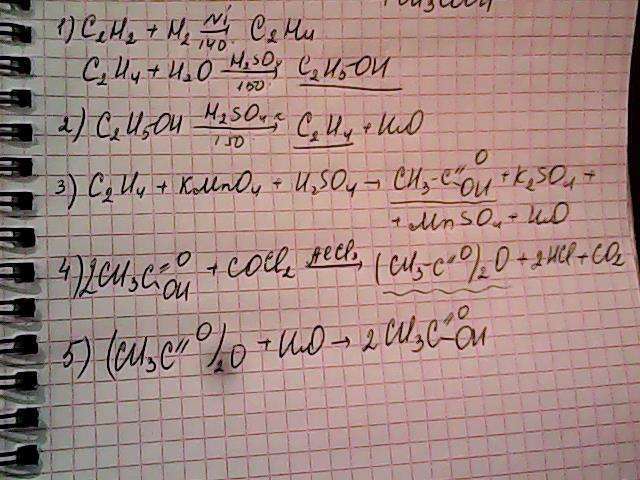 1) C₂H₂ + H₂ Ni/140 C₂H₄
C₂H₄ + H₂O H₂SO₄/150 → C₂H₅OH
2) C₂H₅OH H₂SO₄ к/150 → C₂H₄ + H₂O
3) C₂H₄ + KMnO₄ + H₂SO₄ → CH₃-C=O OH + K₂SO₄ +
+ MnSO₄ + H₂O
4) 2CH₃C=O OH + COCl₂ AlCl₃ → (CH₃-C=O)₂O + 2HCl + CO₂
5) (CH₃C=O)₂O + H₂O → 2CH₃C=O-OH